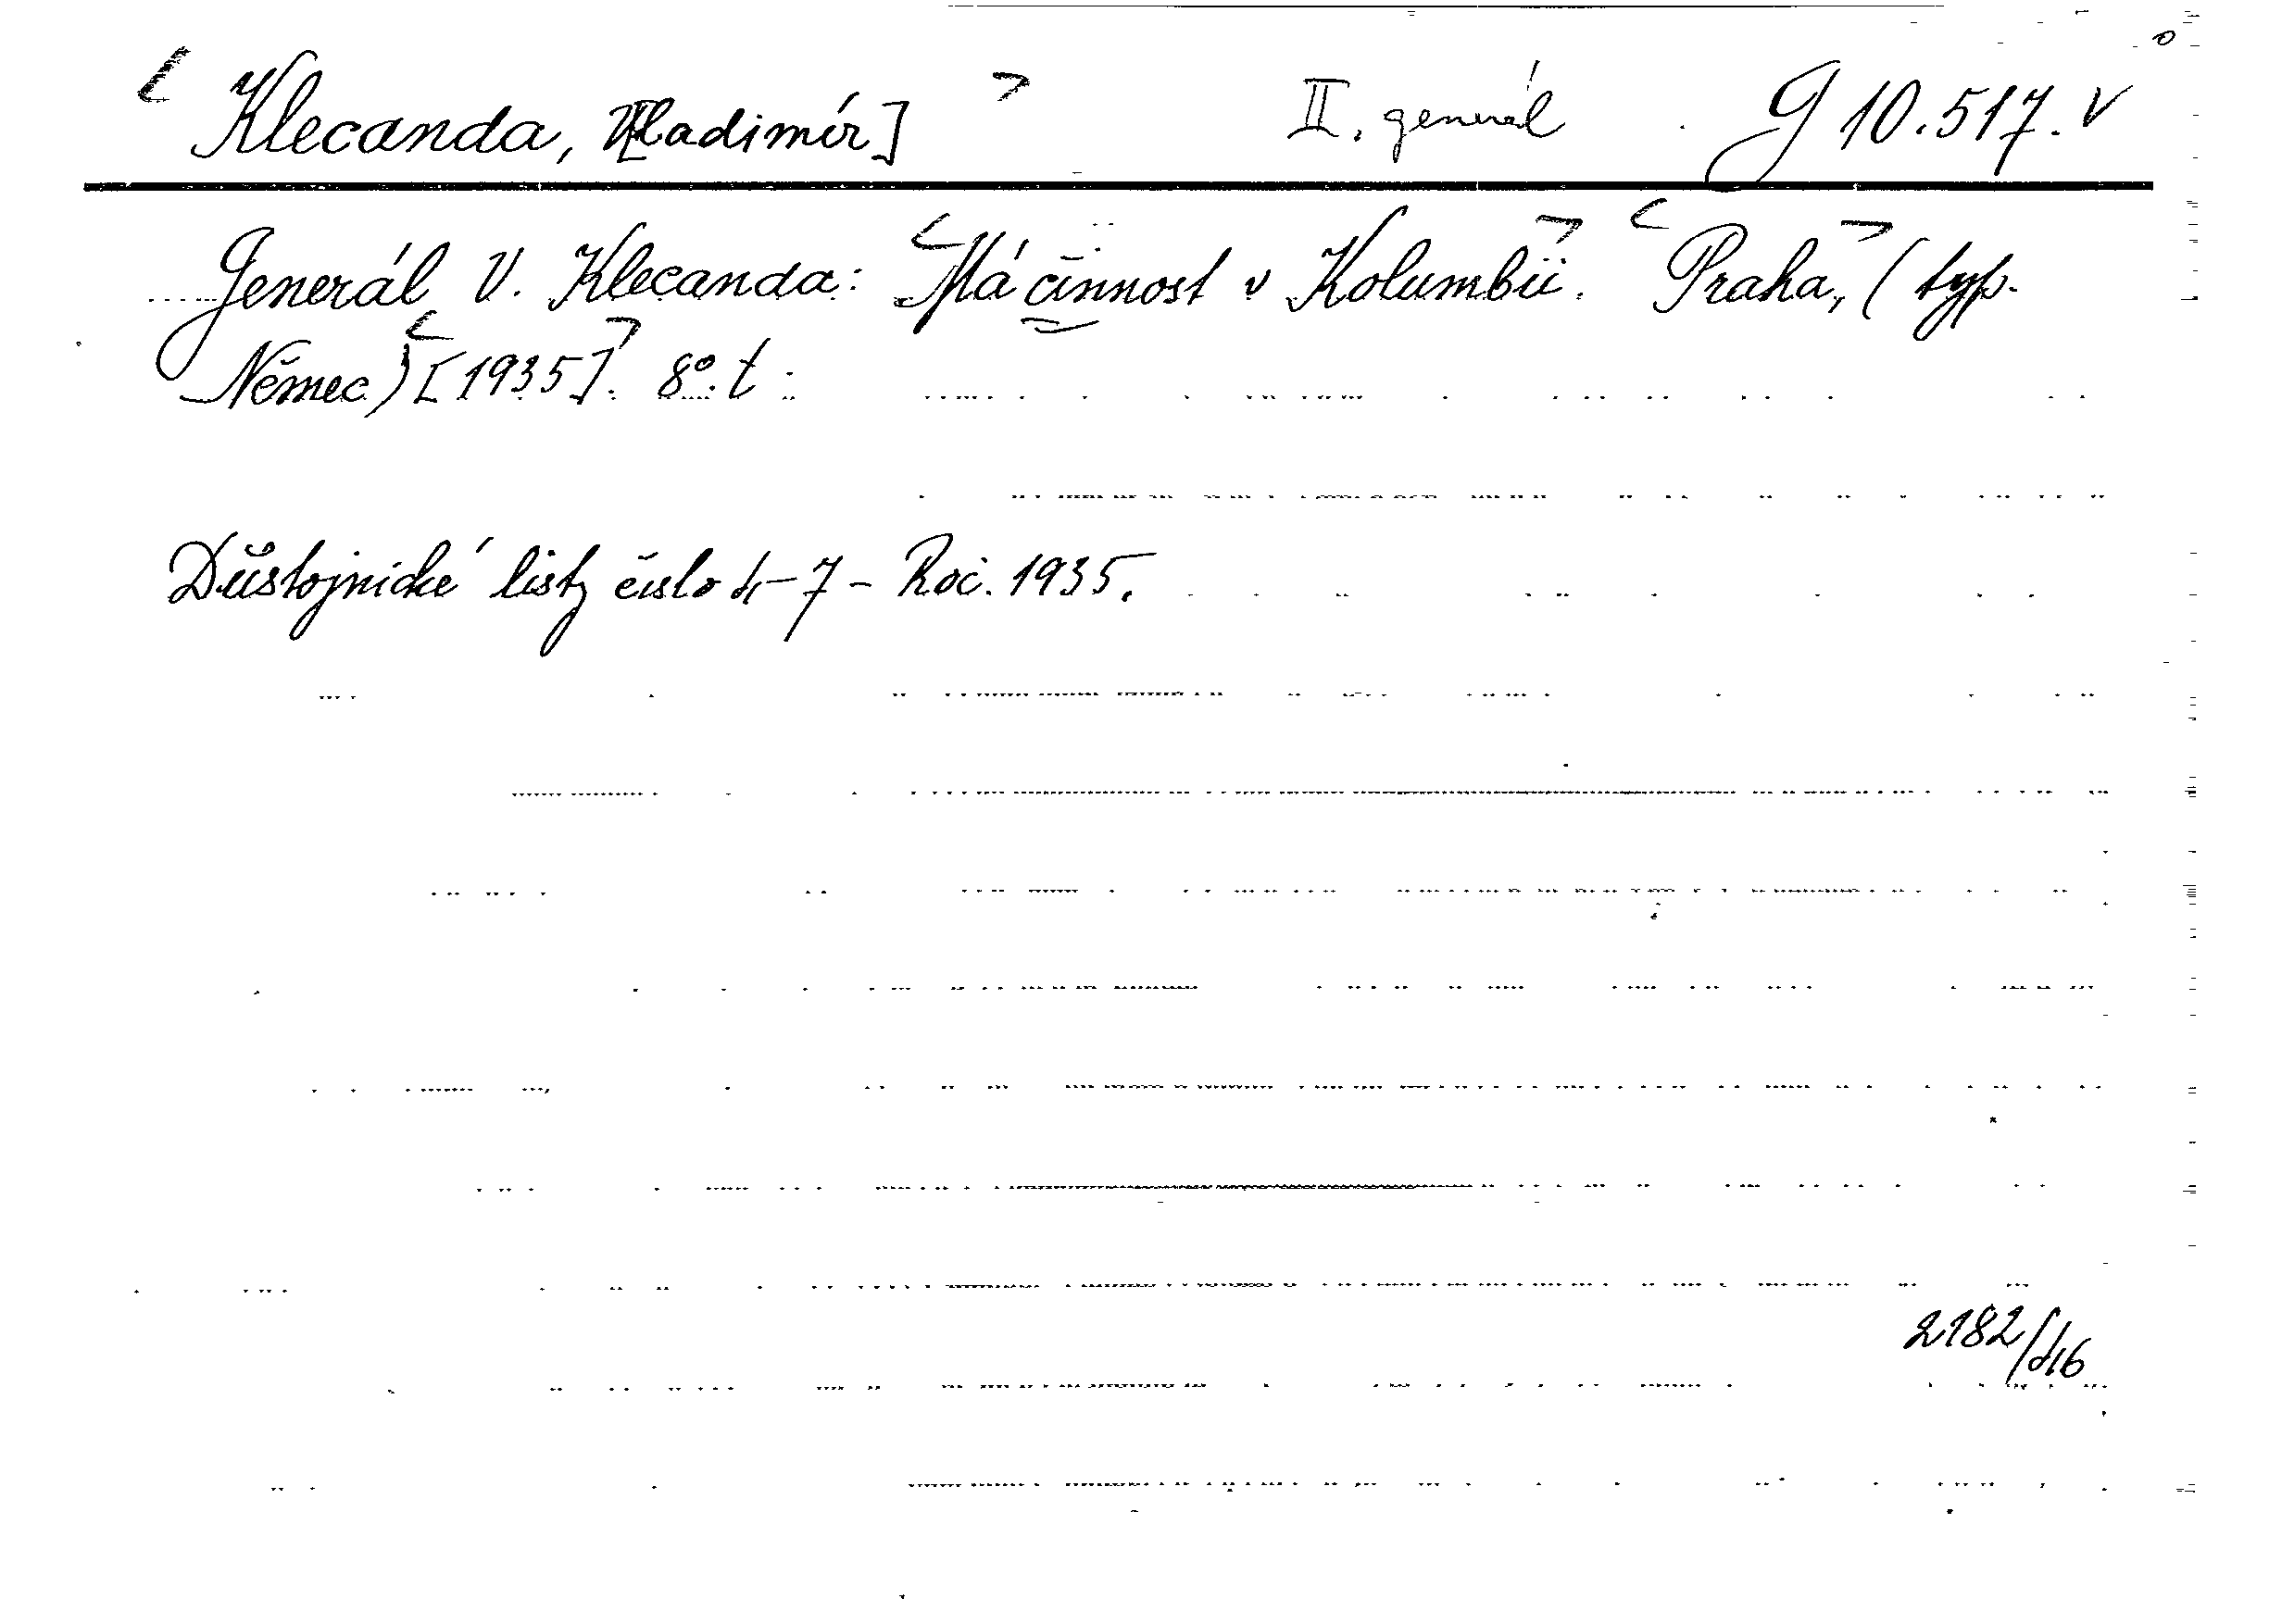 Klecanda, V[ladimír] II. generál G 10.517. V
Generál V. Klecanda: Má činnost v Kolumbii. Praha, (typ.
Němec) [1935]. 8°. t.
Důstojnické listy číslo 4-7 - Roč. 1935.
2182/46